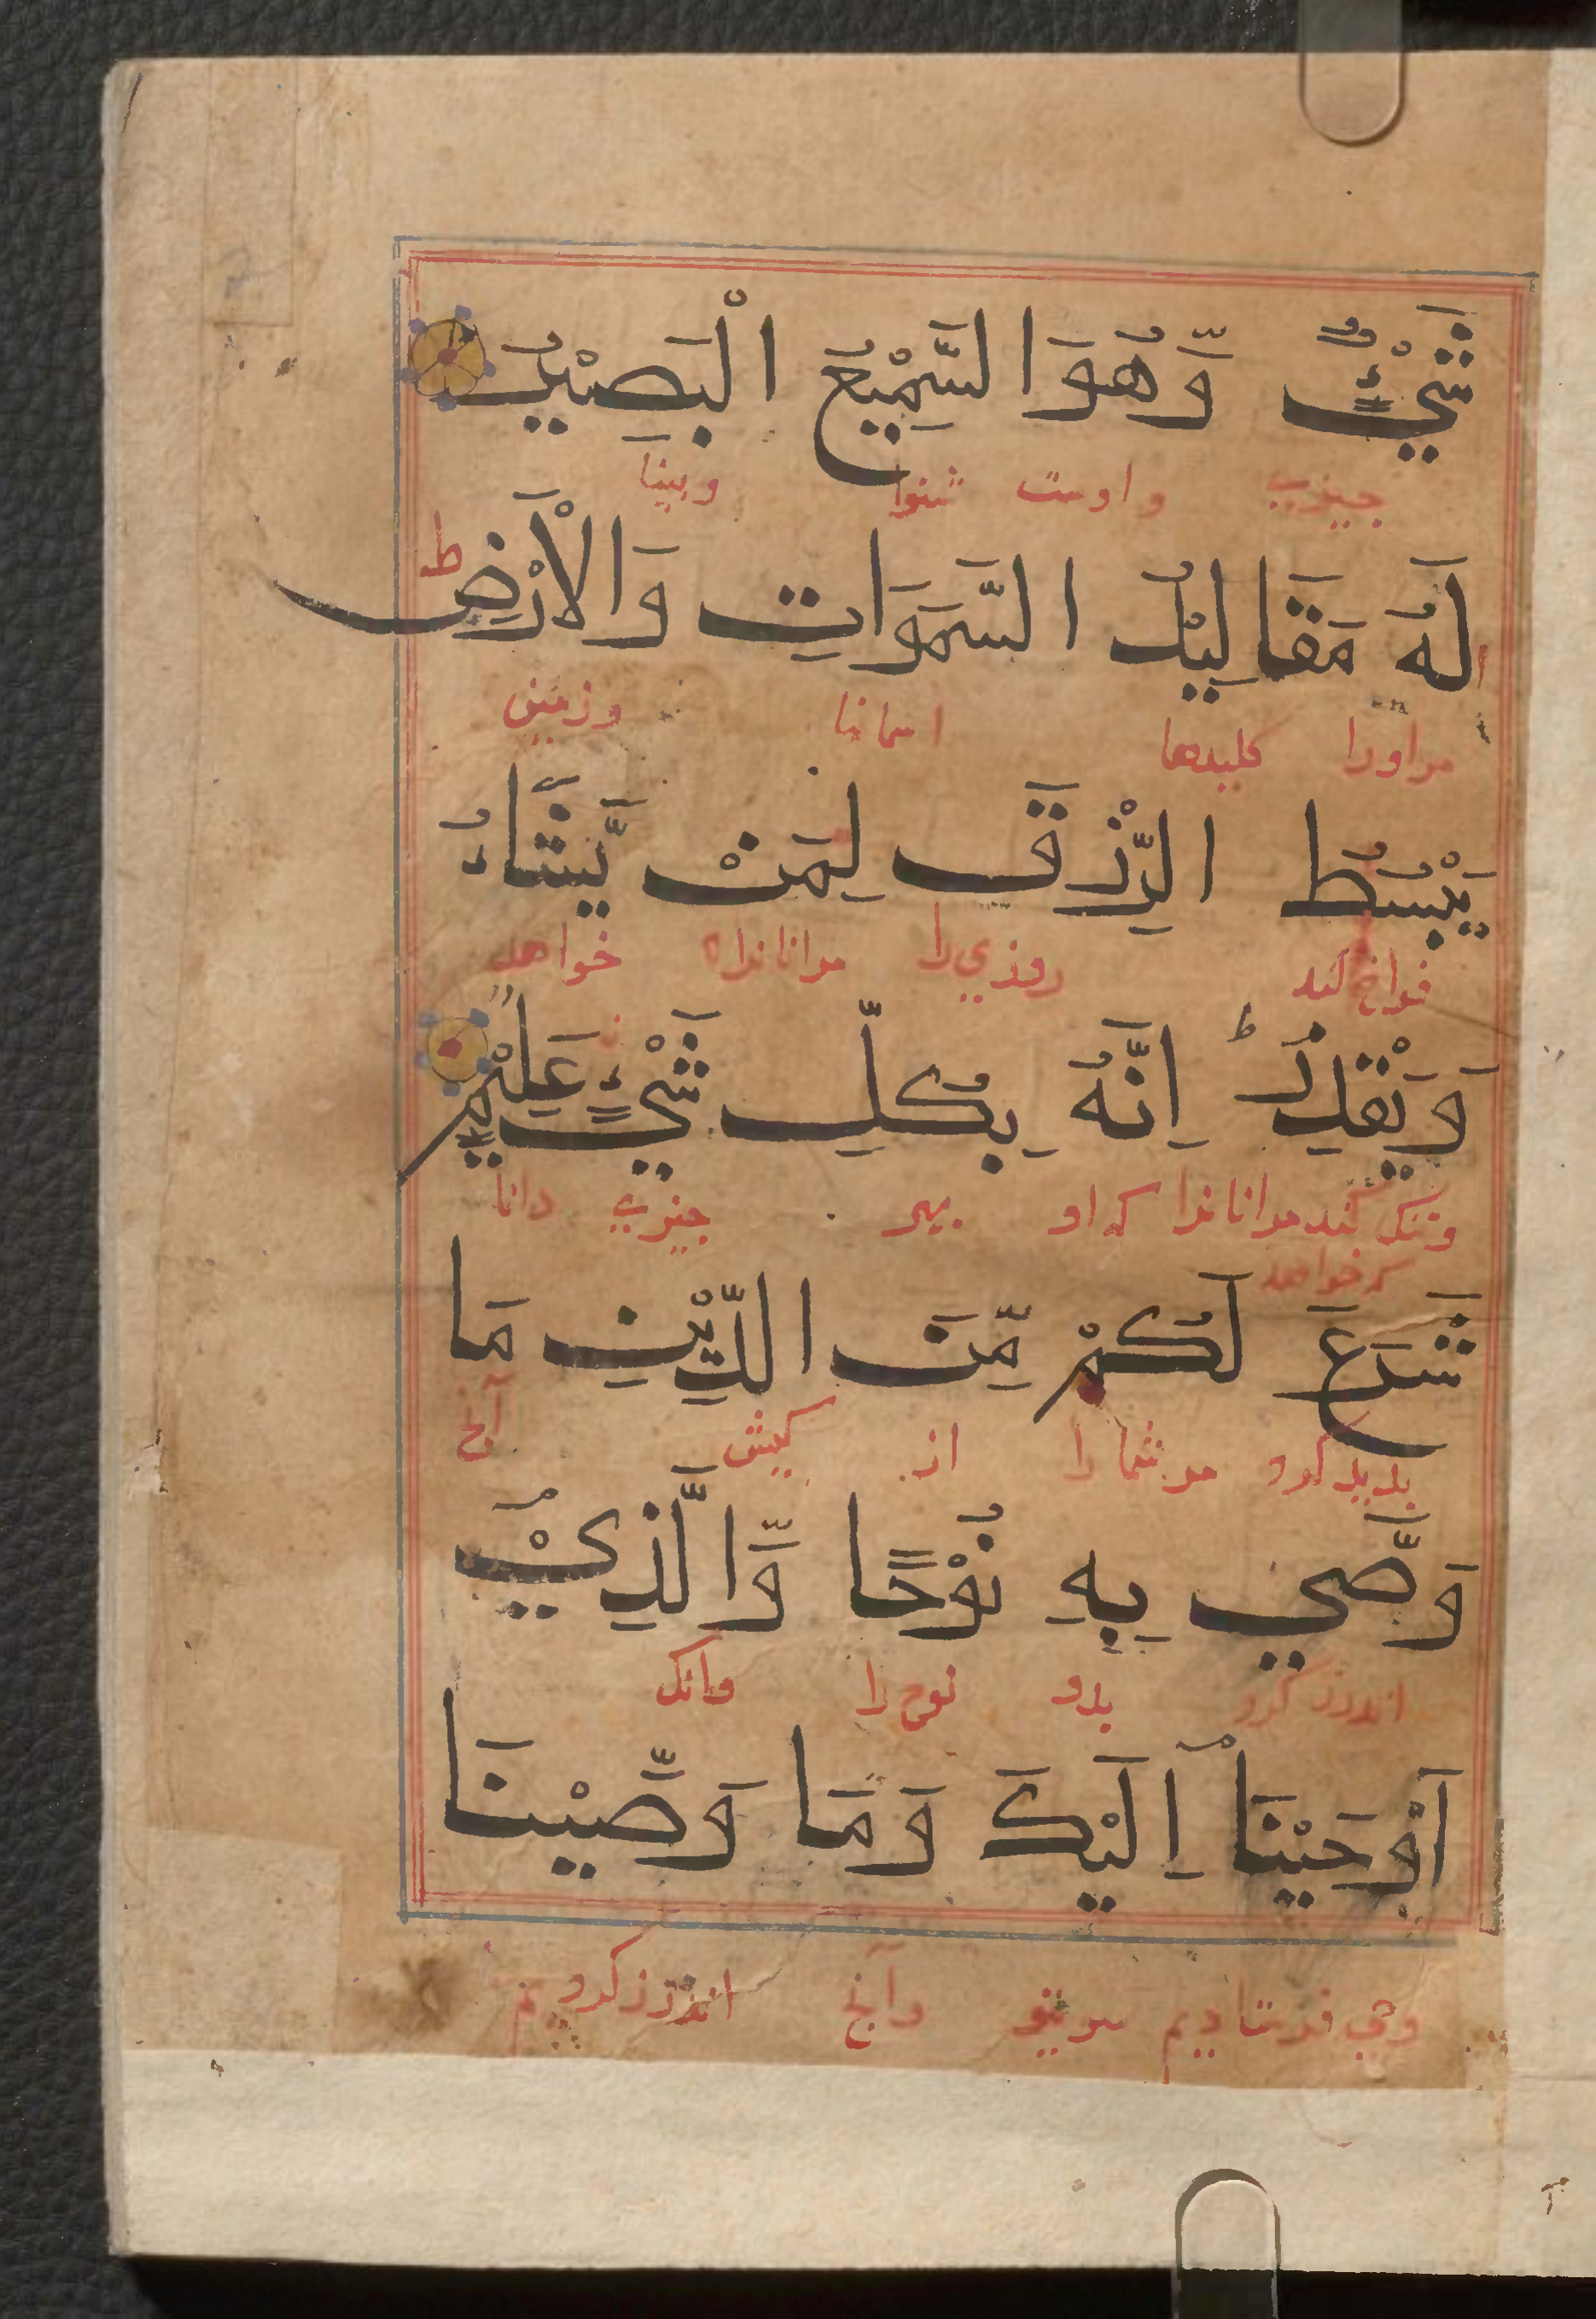 شَيْءٌ وَّهُوَ السَّمِيْعُ الْبَصِيْرُ
چیزی واوست شنوا وبینا
لَهُ مَقَالِيْدُ السَّمَوَاتِ وَالْاَرْضِ ط
مراورا کلیدها اسمانها وزمین
يَبْسُطُ الرِّزْقَ لِمَنْ يَّشَاءُ
فراخ کند روزي را مرانانراه خواهد
وَيَقْدِرُ ط اِنَّهُ بِكُلِّ شَيْءٍ عَلِيْمٌ
وتنک کند مرانانرا که او بهر چیزی دانا
که خواهد
شَرَعَ لَكُمْ مِّنَ الدِّيْنِ مَا
بدید کرد مر شما را از کیش آنچ
وَصَّي بِهِ نُوْحًا وَّالَّذِيْ
اندرز کرد بدو نوح را وانک
اَوْحَيْنَا اِلَيْكَ وَمَا وَصَّيْنَا
وحي فرستادیم سوتو وآنچ اندرز کردیم